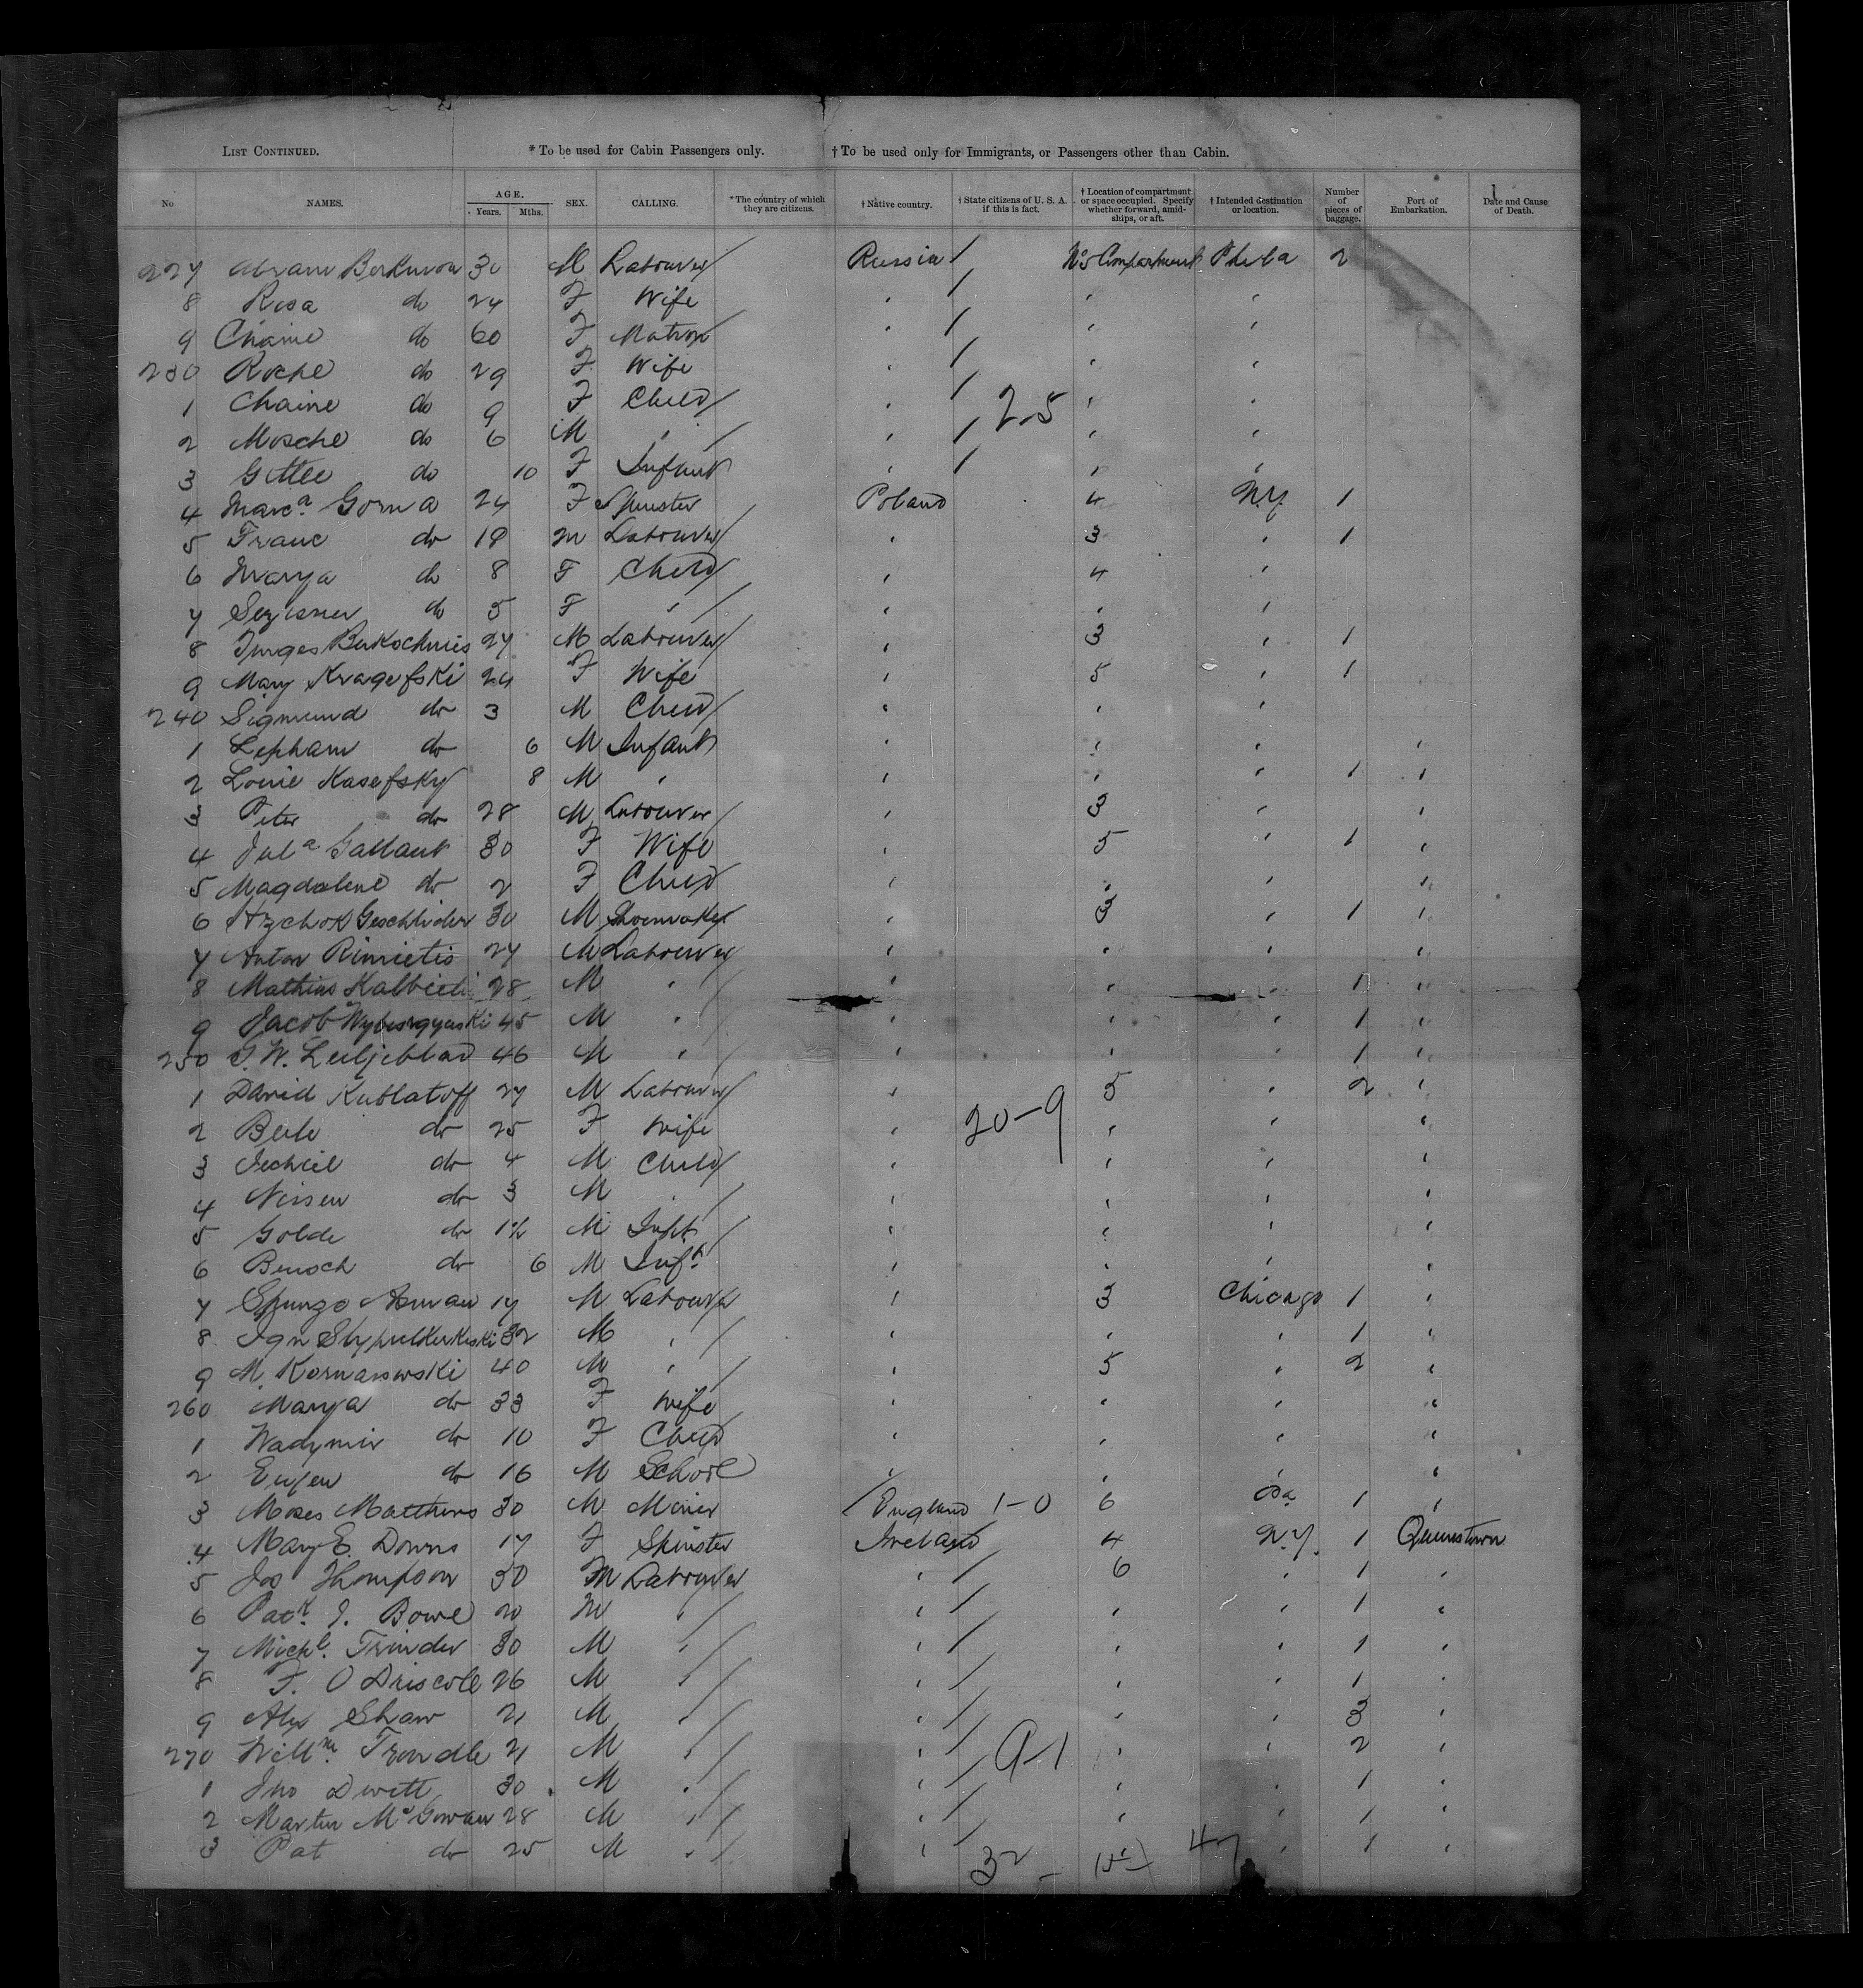 LIST CONTINUED. * To be used for Cabin Passengers only. † To be used only for Immigrants, or Passengers other than Cabin.
No NAMES. AGE. Years. Mths. SEX. CALLING. * The country of which they are citizens. † Native country. † State citizens of U. S. A. if this is fact. † Location of compartment or space occupied. Specify whether forward, amidships, or aft. † Intended destination or location. Number of pieces of baggage. Port of Embarkation. Date and Cause of Death.
227 Abram 30 M Labourer Russia No 5 Compartment Phila 2
8 Rosa do 24 F Wife
9 Chaine do 60 F Matron
230 Roche do 29 F Wife
1 Chaine do 9 F Child 2-5
2 Mosche do 6 M "
3 Gittee do 10 F Infant
4 Marca Gorna 24 F Spinster Poland 4 N.Y. 1
5 Franc do 18 M Labourer " 3 " 1
6 Marya do 8 F Child " 4 "
7 do 5 F " " " "
8 Jurges 27 M Labourer " 3 " 1
9 Mary Kragefski 24 F Wife " 5 " 1
240 Sigmund do 3 M Child " " "
1 Lepham do 6 M Infant " " " "
2 Louie Kasefsky 8 M " " " " 1 "
3 Peter do 28 M Labourer " 3 " "
4 Jula Gallant 30 F Wife " 5 " 1 "
5 Magdalene do 2 F Child " " " "
6 30 M Shoemaker " 3 " 1 "
7 Anton Rimietis 27 M Labourer " " " "
8 Mathias 28 M " " " " 1 "
9 Jacob 45 M " " " " 1 "
250 46 M " " " " 1 "
1 David Kublatoff 27 M Labourer " 5 " 2 "
2 Beile do 25 F Wife " 20-9 " " "
3 Jechiel do 4 M Child " " " "
4 Nissen do 3 M " " " " "
5 Golde do 1½ M Inft " " " "
6 Benoch do 6 M Inft " " " "
7 17 M Labourer " 3 Chicago 1 "
8 Ign 32 M " " " " 1 "
9 M. Kornarswski 40 M " " 5 " 2 "
260 Marya do 33 F Wife " " " "
1 Wadymir do 10 F Child " " " "
2 Eugen do 16 M School " " " "
3 Moses Matthews 30 M Miner England 1-0 6 Pa 1 "
4 Mary E. Downs 17 F Spinster Ireland 4 N.Y. 1 Queenstown
5 Jas Thompson 30 M Labourer " 6 " 1 "
6 Patk J. Bowe 20 M " " " " 1 "
7 Michl. Trinder 30 M " " " " 1 "
8 F. O Driscole 26 M " " " " 1 "
9 Alex Shaw 21 M " " " " 3 "
270 Willm. Trindle 21 M " " 9-1 " " 2 "
1 Jno Dwitt 30 M " " " " 1 "
2 Martin McGowan 28 M " " " " 1 "
3 Pat do 25 M " " " 1 "
32 - 15 47